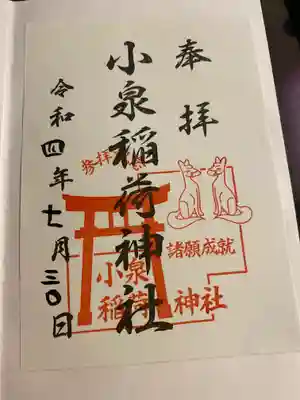 奉拝
小泉稲荷神社
令和四年七月三〇日
諸願成就
小泉
稲荷神社